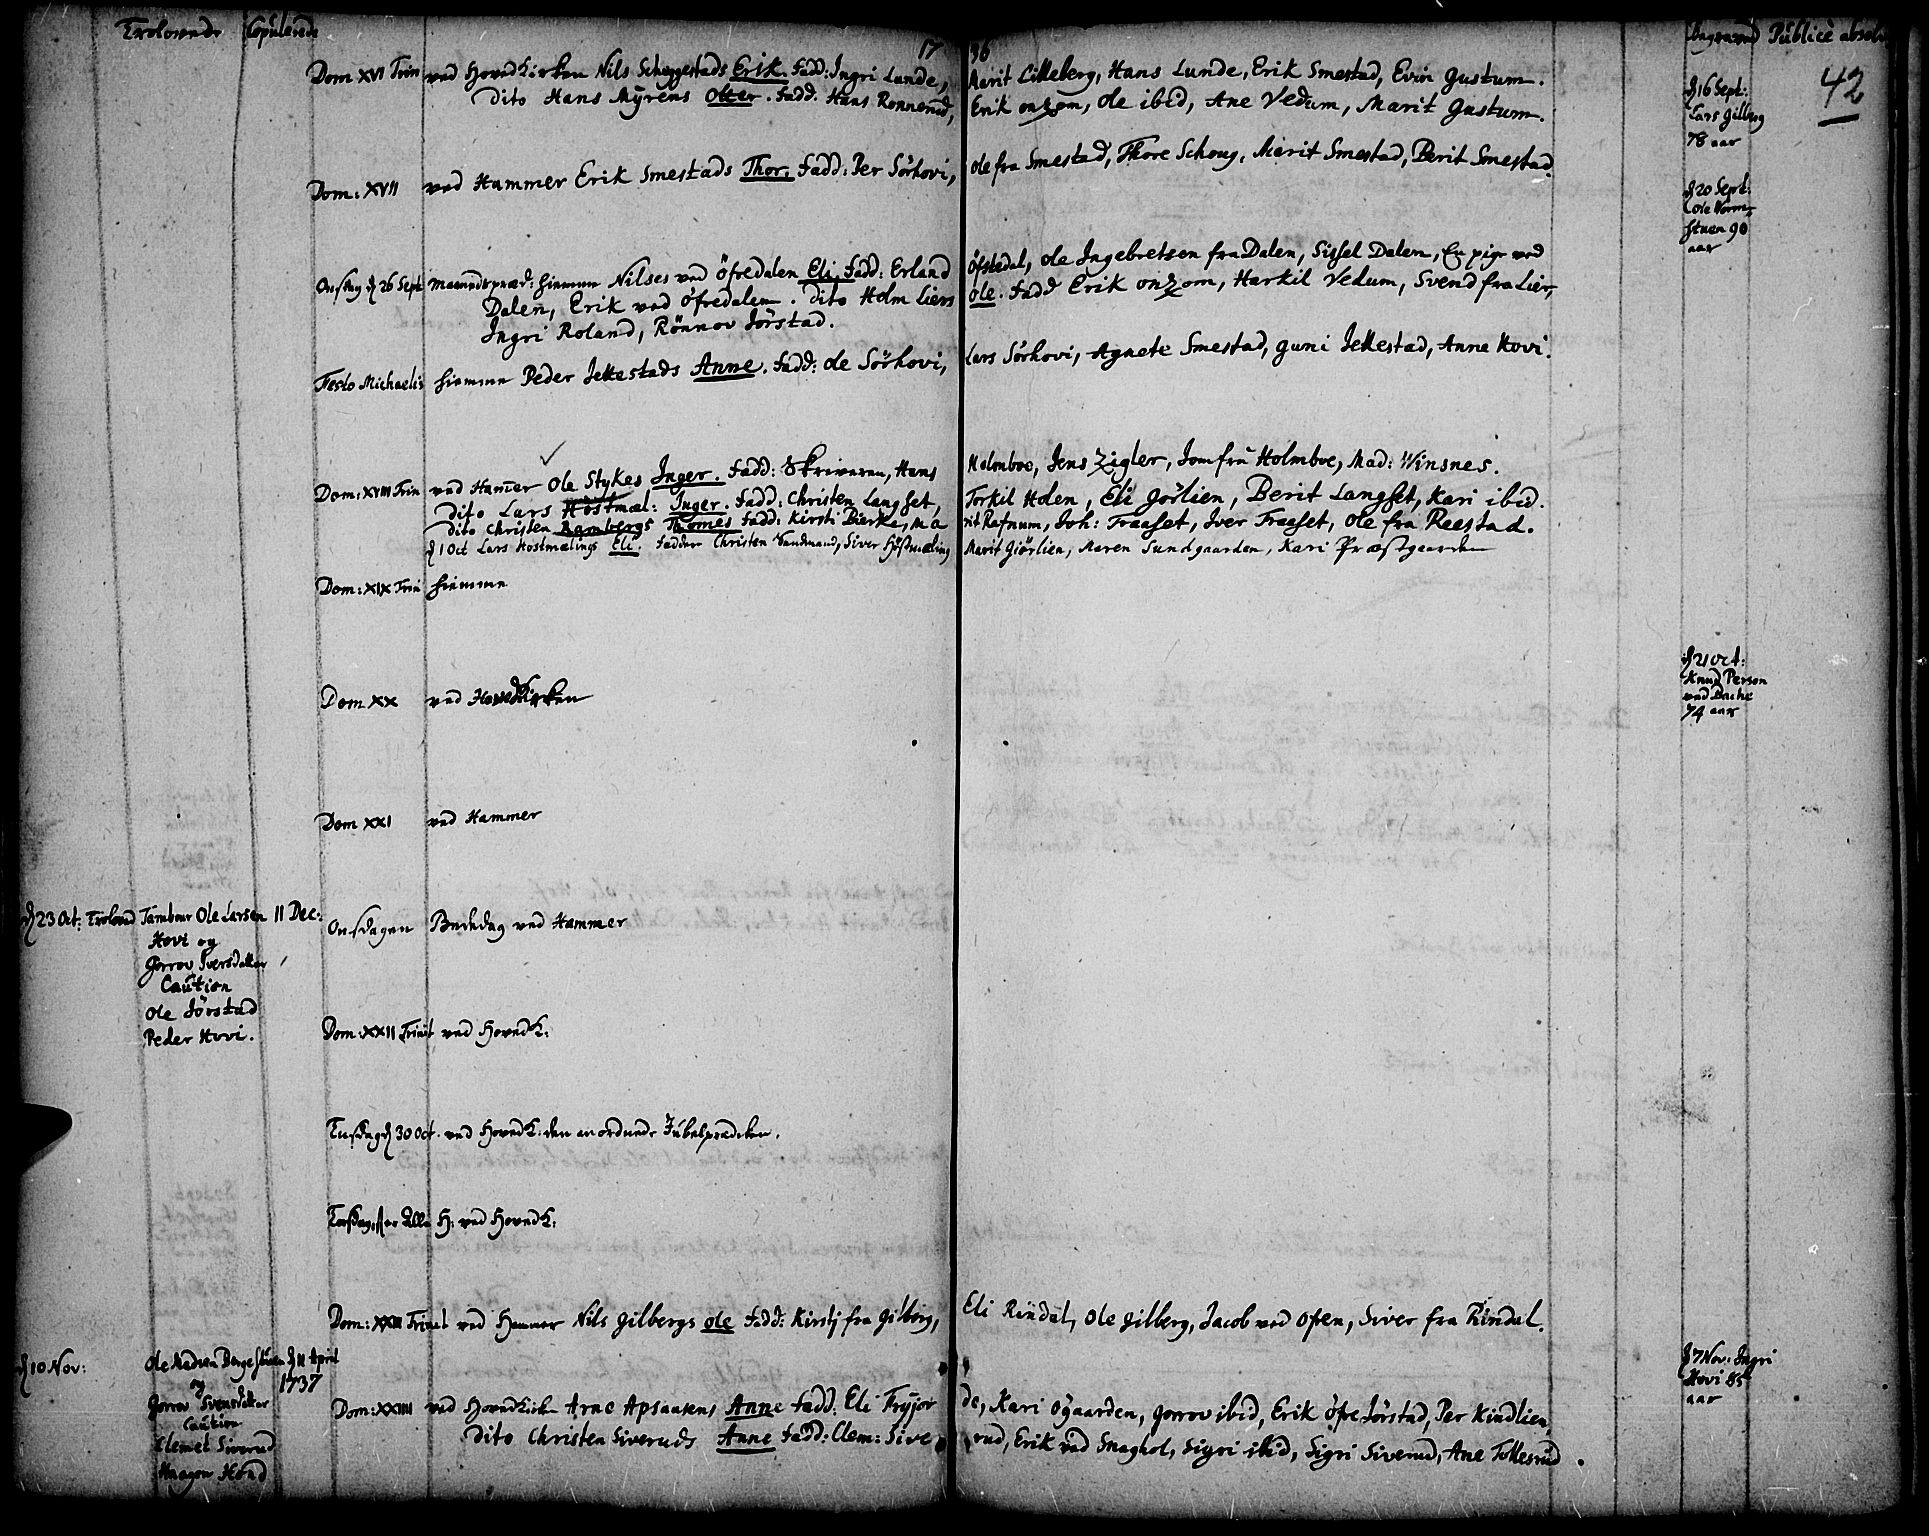 Trolovede Copulerede
17 36
Begraved Publice absol
42
Dom XVI Trin ved Hovedkirken Nils Scheggestads Erik. Fadd: Ingri Lunde, Marit Lilleberg, Hans Lunde, Erik Smestad, Evin Gustum.
Dito Hans Myrens Otter. Fadd. Hans Ronnerud, Erik onzom, Ole ibid, Ane Vedum, Marit Gustum.
d 16 Sept:
Lars Gilberg
78 aar
Dom: XVII ved Hammer Erik Smestads Thor. Fadd: Per Sörhovi, Ole fra Smestad, Thore Schoug, Marit Smestad, Berit Smestad.
d 20 Sept:
Ole
stuen 90
aar
Onsdag d 26 Sept hiemme Nilses ved Öfredalen Eli. Fadd: Erland Öfstedal, Ole Ingebretsen fra Dalen, Sissel Dalen, En pige ved
Dalen, Erik ved Öfredalen. Dito Holm Liers Ole. Fadd Erik onzom, Harkil Vedum, Svend fra Lier,
Ingri Roland, Rönnov Jörstad.
Festo Michaelis hiemme Peder Jellestads Anne. Fadd: Ole Sörhovi, Lars Sörhovi, Agnete Smestad, Guni Jellestad, Anne Hovi.
Dom: XVIII Trin ved Hamer Ole Stykes Inger. Fadd: Skriveren, Hans Holmboe, Jens Zigler, Jomfru Holmboe, Mad: Winsnes.
Dito Lars Höstmæl: Inger. Fadd: Christen Langset, Torkil Holen, Eli Görlien, Berit Langset, Kari ibid.
Dito Christen Rambergs Thomes Fadd: Kirsti Bierke, Marit Rafnum, Joh: Fraaset, Iver Fraaset, Ole fra Reestad.
d 1 Oct Lars Hostmelings Eli. Faddere Christen Sandmand, Siver Höstmæling Marit Giörlien, Maren Sundgaarden, Kari Præstgaarden
Dom: XIX Trin hiemme
Dom XX ved Hovedkirken
d 21 Oct:
Knud Person
ved Bache
74 aar
Dom XXI ved Hammer
d 23 Oct: Trolovd Tambour Ole Larsen 11 Dec:
Hovi og
Gorrov Iversdatter
Caution
Ole Jörstad
Peder Hovi.
Onsdagen Bededag ved Hammer
Dom: XXII Trinit ved Hovedk:
Tisdag d 30 Oct. ved Hovedk: den anordnede Jubelprædiken.
Torsdag, Alle H: ved Hovedk:
Dom: XXIII Trinit ved Hammer Nils Gilbergs Ole Fadd: Kirstj fra Gilberg, Eli Rindal, Ole Gilberg, Jacob ved Ofven, Siver fra Rindal.
d 10 Nov: Ole Madsen Bergestuen d 11 April
og 1737
Gorrov Svensdatter
Caution
Clemet Siverud
Haagon Hond
d 7 Nov: Ingri
Hovi 85
aar
Dom: XXIIII ved Hovedkirken Arne Apsaasens Anne Fadd: Eli Fryjorde, Kari Ögaarden, Gorrov ibid, Erik Öfre Jörstad, Per Kindlien,
Dito Christen Siveruds Anne Fadd: Clem: Siverud, Erik ved Snaghol, Sigri ibid, Sigri Siverud, Ane Tollesrud.